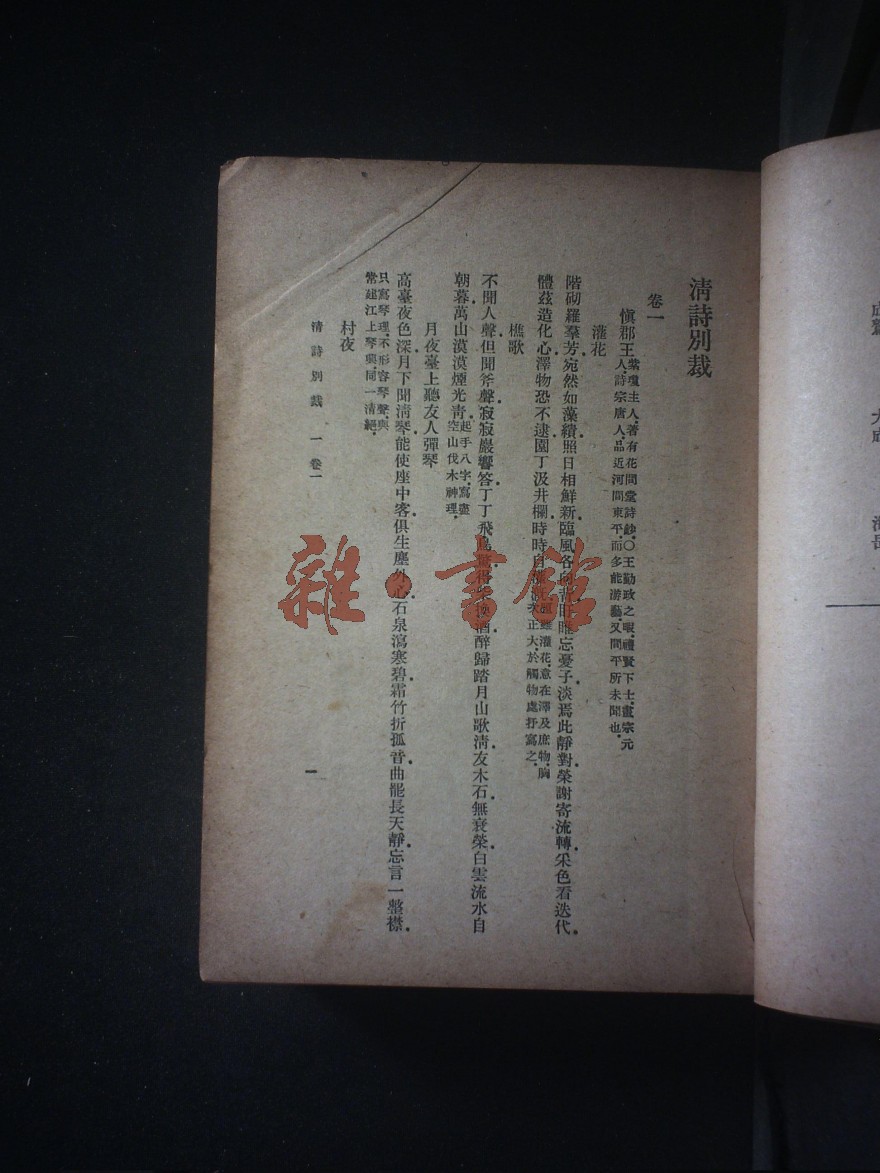 清詩別裁
卷一
慎郡王 紫瓊主人著有花間堂詩鈔○王勤政之暇禮賢下士畫宗元
人詩宗唐人品近河間東平而多能游藝又間平所未聞也
灌花
階砌羅羣芳宛然如藻繢照日相鮮新臨風各向背 忘憂子淡焉此靜對榮謝寄流轉采色看迭代
體茲造化心澤物恐不逮園丁汲井欄時時自 灌花意在澤及庶物胸
次正大於觸物處抒寫之
樵歌
不聞人聲但聞斧聲寂寂巖響答丁丁飛鳥驚 酒醉歸踏月山歌淸友木石無衰榮白雲流水自
朝暮萬山漠漠煙光靑 起手八字寫盡
空山伐木神理
月夜臺上聽友人彈琴
高臺夜色深月下聞淸琴能使座中客俱生塵外心石泉瀉寒碧霜竹折孤音曲罷長天靜忘言一整襟
只寫琴理不形容琴聲與
常建江上琴興同一淸絕
村夜
清詩別裁 一 卷一
一
雜·書館